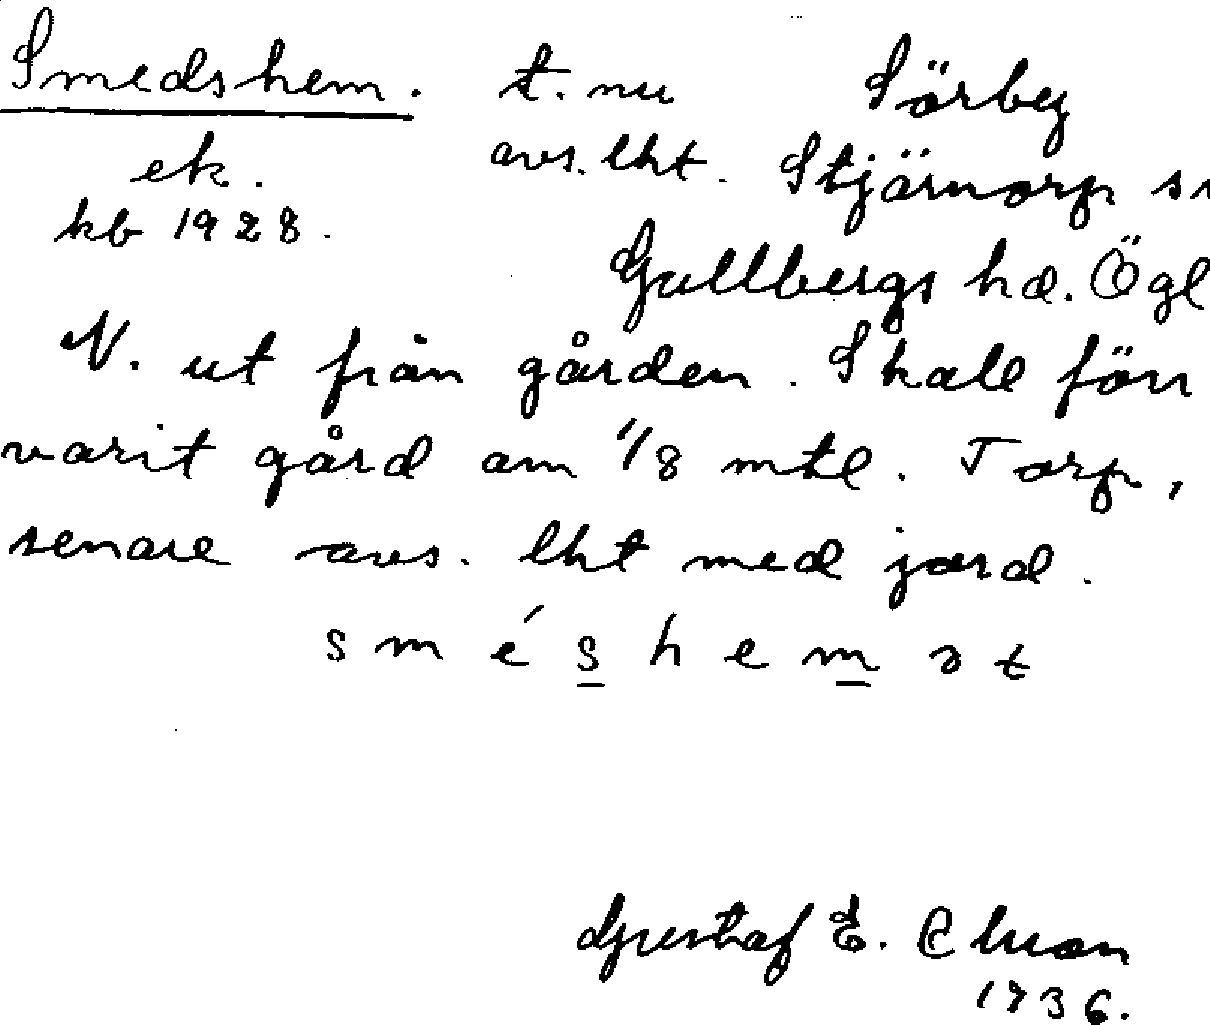 Smedshem. t. nu Sörby
ek. avs. lht. Stjärnorp s
kb 1928. Gullbergs hd. Ögl
N. ut från gården. Skall förr
varit gård om 1/8 mtl. Torp,
senare avs. lht med jord.
s m é s h e m ə t
Gustaf E.
1936.